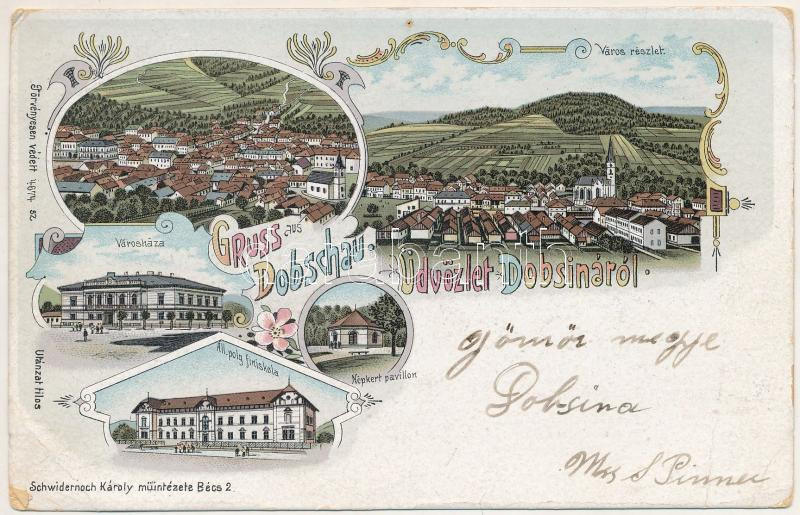 Város részlet.
Törvényesen védett 4674 sz.
Gruss aus
Dobschau.
Üdvözlet Dobsináról.
Városháza
Áll. polg. fiúiskola
Népkert pavillon
Utánzat tilos
Gömör megye
Dobsina
Mrs S Pinner
Schwidernoch Károly műintézete Bécs 2.